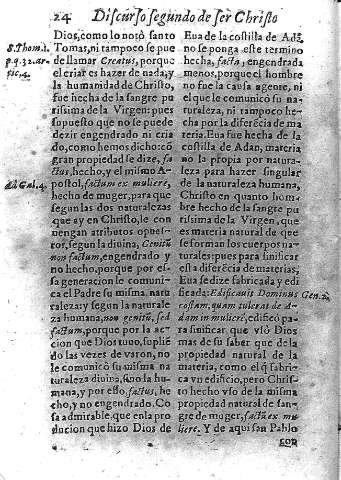 24 Discurso segundo de ser Christo
Dios, como lo notò santo
Tomas, ni tampoco se pue
de llamar Creatus, porque
el criar es hazer de nada, y
la humanidad de Christo,
fue hecha de la sangre pu
rissima de la Virgen: pues
supuesto que no se puede
dezir engendrado ni cria
do, como hemos dicho: cõ
gran propiedad se dize, fa
ctus, hecho, y el mismo A-
postol, factum ex muliere,
hecho de muger, para que
segun las dos naturalezas
que ay en Christo, le con
uengan atributos opues-
tos, segun la diuina, Genitũ
non factum, engendrado y
no hecho, porque por es-
sa generacion le comuni-
ca el Padre su misma natu
raleza; y segun la naturale
za humana, non genitũ, sed
factum, porque por la ac-
cion que Dios tuuo, suplié
do las vezes de varon, no
le comunicò su misma na
turaleza diuina, sino la hu
mana, y por esso, factus, he
cho, y no engendrado. Co
sa admirable, que en la pro
duccion que hizo Dios de
S. Thom. 1.
p. q. 32. ar-
tic. 4.
Ad Gal. 4.
Eua de la costilla de Adã,
no se ponga este termino
hecha, facta, engendrada
menos, porque el hombre
no fue la causa agente, ni
el que le comunicò su na-
turaleza, ni tampoco he-
cha por la diferẽcia de ma
teria. Eua fue hecha de la
costilla de Adan, materia
no la propia por natura-
leza para hazer singular
de la naturaleza humana,
Christo en quanto hom-
bre hecho de la sangre pu
rissima de la Virgen, que
es materia natural de que
se forman los cuerpos nat-
urales: pues para sinificar
esta diferẽcia de materias,
Eua se dize fabricada y edi
ficada: Edificauit Dominus
costam, quam tulerat de A-
dam in mulierẽ, edificò pa
ra sinificar que vsò Dios
mas de su saber que de la
propiedad natural de la
materia, como el q̃ fabri-
ca vn edificio, pero Chris-
to hecho vso de la misma
propiedad natural de san-
gre de muger, factũ ex mu
liere. Y de aqui san Pablo
Gen. 2.
con